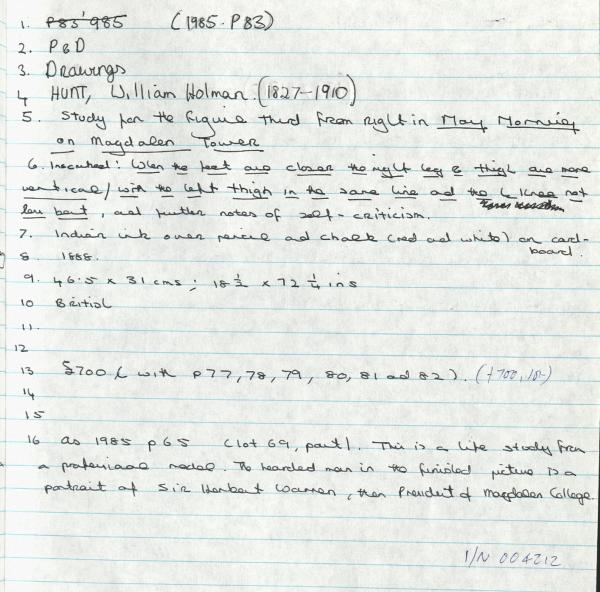 1. P83' 985 (1985. P83)
2. P&D
3. Drawings
4 HUNT, William Holman. (1827-1910)
5. Study for the Figure third from right in May Morning
on Magdalen Tower
6. Inscribed: When the feet are closer the right leg & thigh are more
vertical/ with the left thigh in the same line and the L knee not
less bent, and further notes of self-criticism.
7. Indian ink over pencil and chalk (red and white) on card-
board.
8 1888.
9. 46.5 x 31 cms; 18 ½ x 72 ¼ ins
10 British
11.
12
13 £700 ( with P77, 78, 79, 80, 81 and 82).
14
15
16 as 1985 P65 (lot 69, part). This is a life study from
a professional model. The bearded man in the finished picture is a
portrait of Sir Herbert Warren, then President of Magdalen College.
I/N 004212